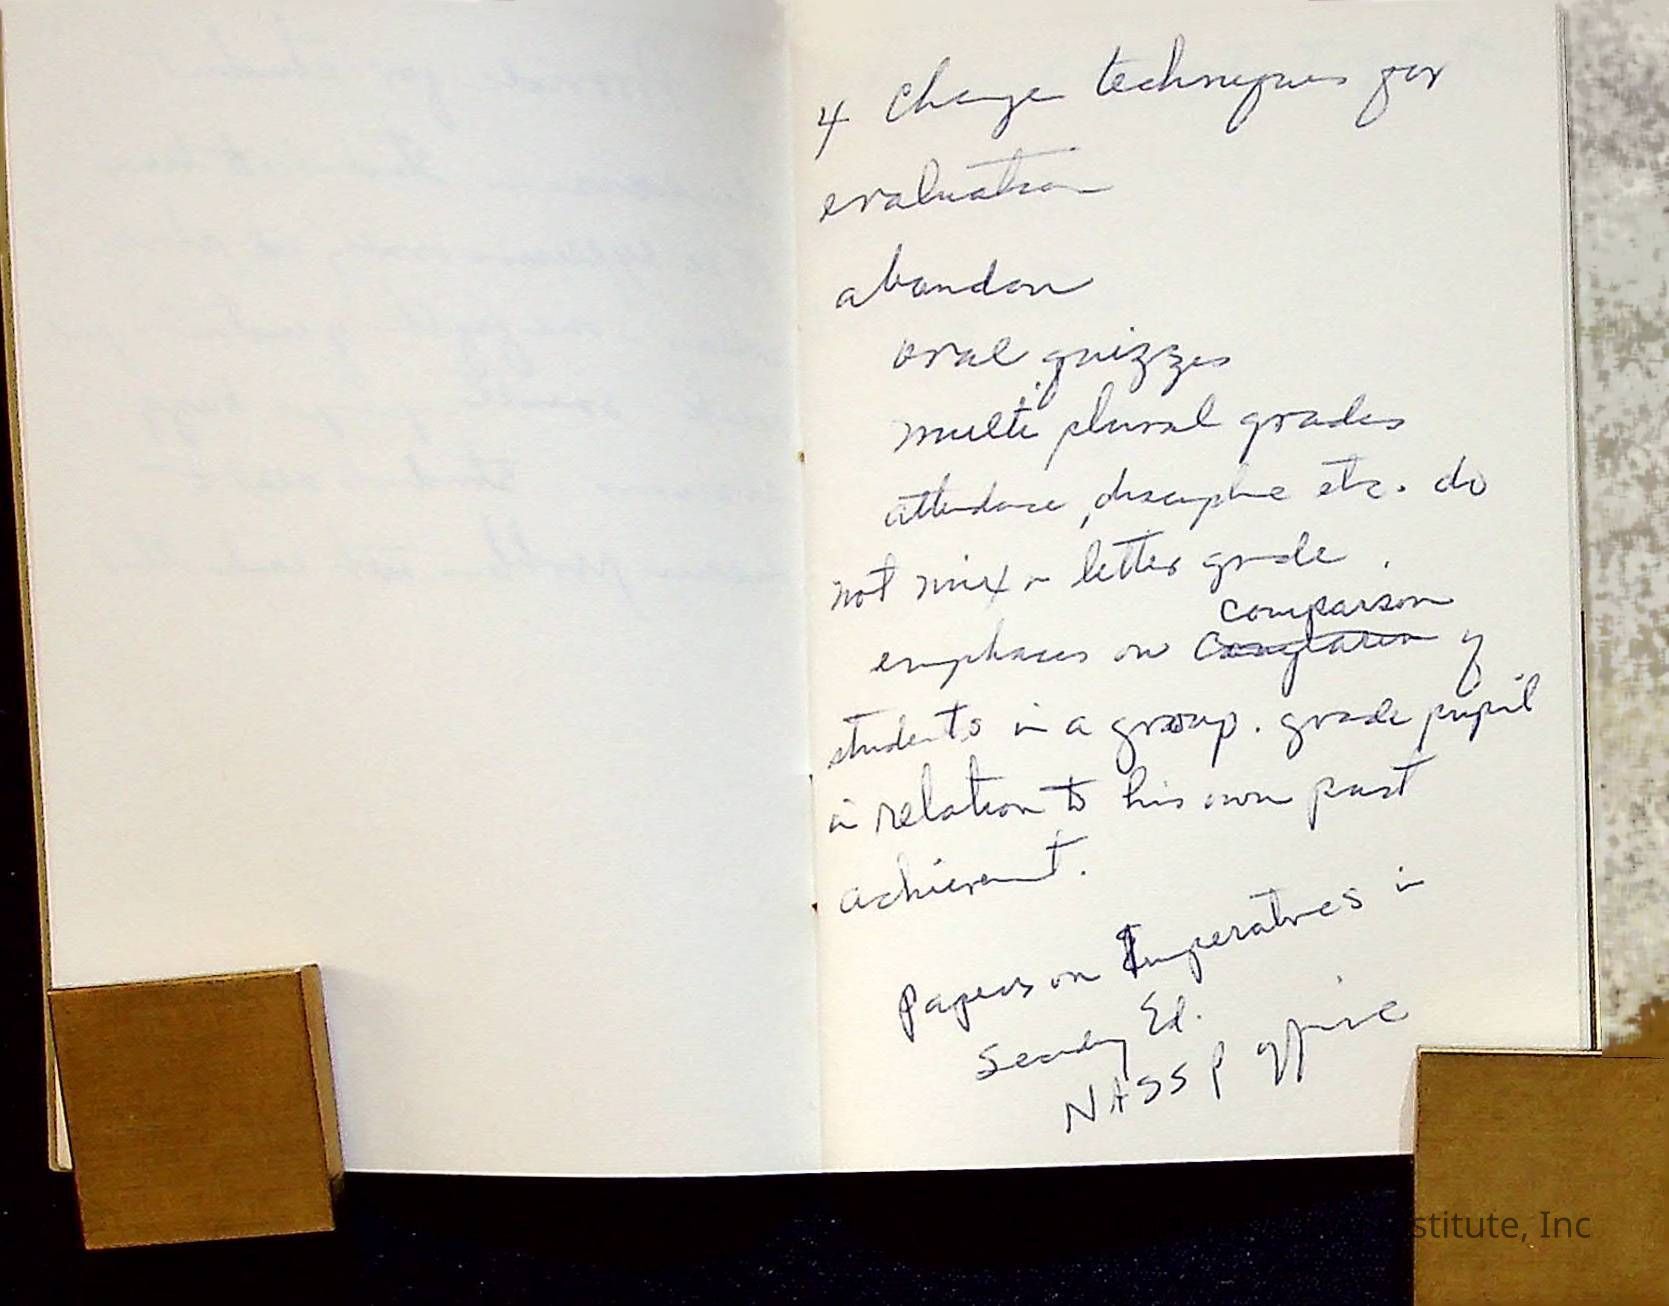 4 Change techniques for
evaluation
abandon
oral quizzes
multi plural grades
attendance, discipline etc. do
not mix in letter grade.
comparson
emphases on of
students in a group. grade pupil
in relation to his own past
achievement.
Papers on Imperatives in
Secondary Ed.
NASSP office
stitute, Inc